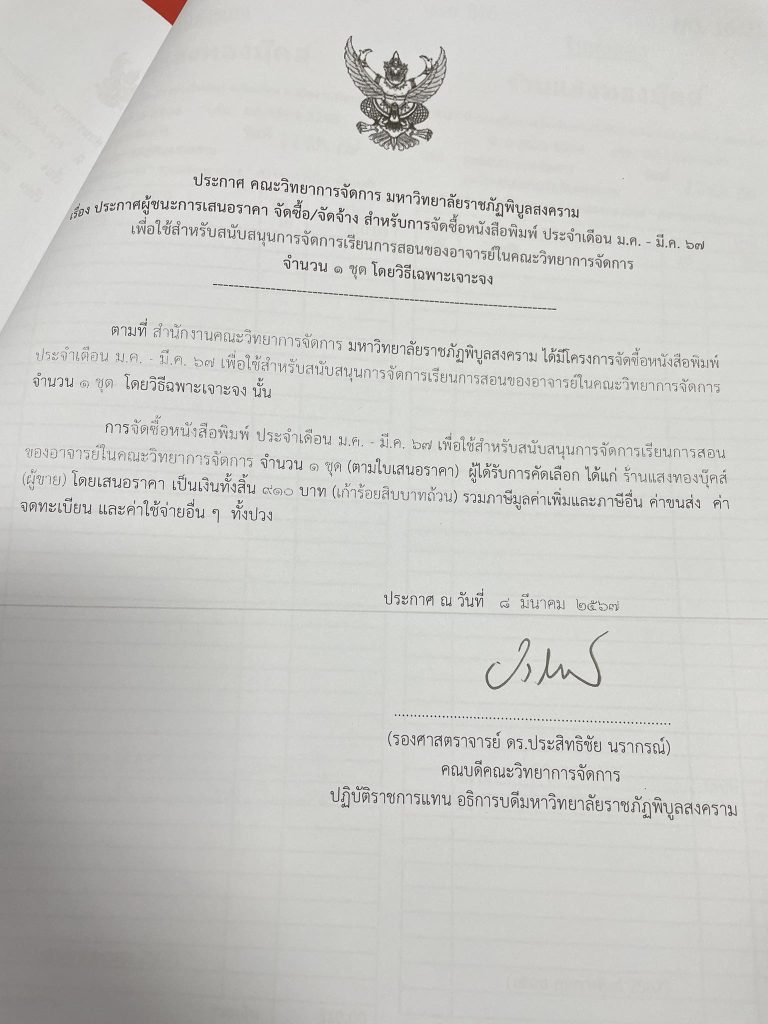 ประกาศ คณะวิทยาการจัดการ มหาวิทยาลัยราชภัฏพิบูลสงคราม
เรื่อง ประกาศผู้ชนะการเสนอราคา จัดซื้อ/จัดจ้าง สำหรับการจัดซื้อหนังสือพิมพ์ ประจำเดือน ม.ค. - มี.ค. ๖๗
เพื่อใช้สำหรับสนับสนุนการจัดการเรียนการสอนของอาจารย์ในคณะวิทยาการจัดการ
จำนวน ๑ ชุด โดยวิธีเฉพาะเจาะจง
ตามที่ สำนักงานคณะวิทยาการจัดการ มหาวิทยาลัยราชภัฏพิบูลสงคราม ได้มีโครงการจัดซื้อหนังสือพิมพ์
ประจำเดือน ม.ค. - มี.ค. ๖๗ เพื่อใช้สำหรับสนับสนุนการจัดการเรียนการสอนของอาจารย์ในคณะวิทยาการจัดการ
จำนวน ๑ ชุด โดยวิธีฉพาะเจาะจง นั้น
การจัดซื้อหนังสือพิมพ์ ประจำเดือน ม.ค. - มี.ค. ๖๗ เพื่อใช้สำหรับสนับสนุนการจัดการเรียนการสอน
ของอาจารย์ในคณะวิทยาการจัดการ จำนวน ๑ ชุด (ตามใบเสนอราคา) ผู้ได้รับการคัดเลือก ได้แก่ ร้านแสงทองบุ๊คส์
(ผู้ขาย) โดยเสนอราคา เป็นเงินทั้งสิ้น ๙๑๐ บาท (เก้าร้อยสิบบาทถ้วน) รวมภาษีมูลค่าเพิ่มและภาษีอื่น ค่าขนส่ง ค่า
จดทะเบียน และค่าใช้จ่ายอื่น ๆ ทั้งปวง
ประกาศ ณ วันที่ ๘ มีนาคม ๒๕๖๗
(รองศาสตราจารย์ ดร.ประสิทธิชัย นรากรณ์)
คณบดีคณะวิทยาการจัดการ
ปฏิบัติราชการแทน อธิการบดีมหาวิทยาลัยราชภัฏพิบูลสงคราม